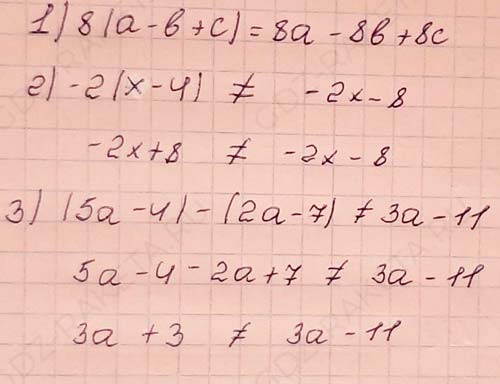 1) 8(a-в+c) = 8a - 8в + 8c
2) -2(x-4) ≠ -2x-8
-2x+8 ≠ -2x-8
3) (5a-4)-(2a-7) ≠ 3a-11
5a-4-2a+7 ≠ 3a-11
3a+3 ≠ 3a-11